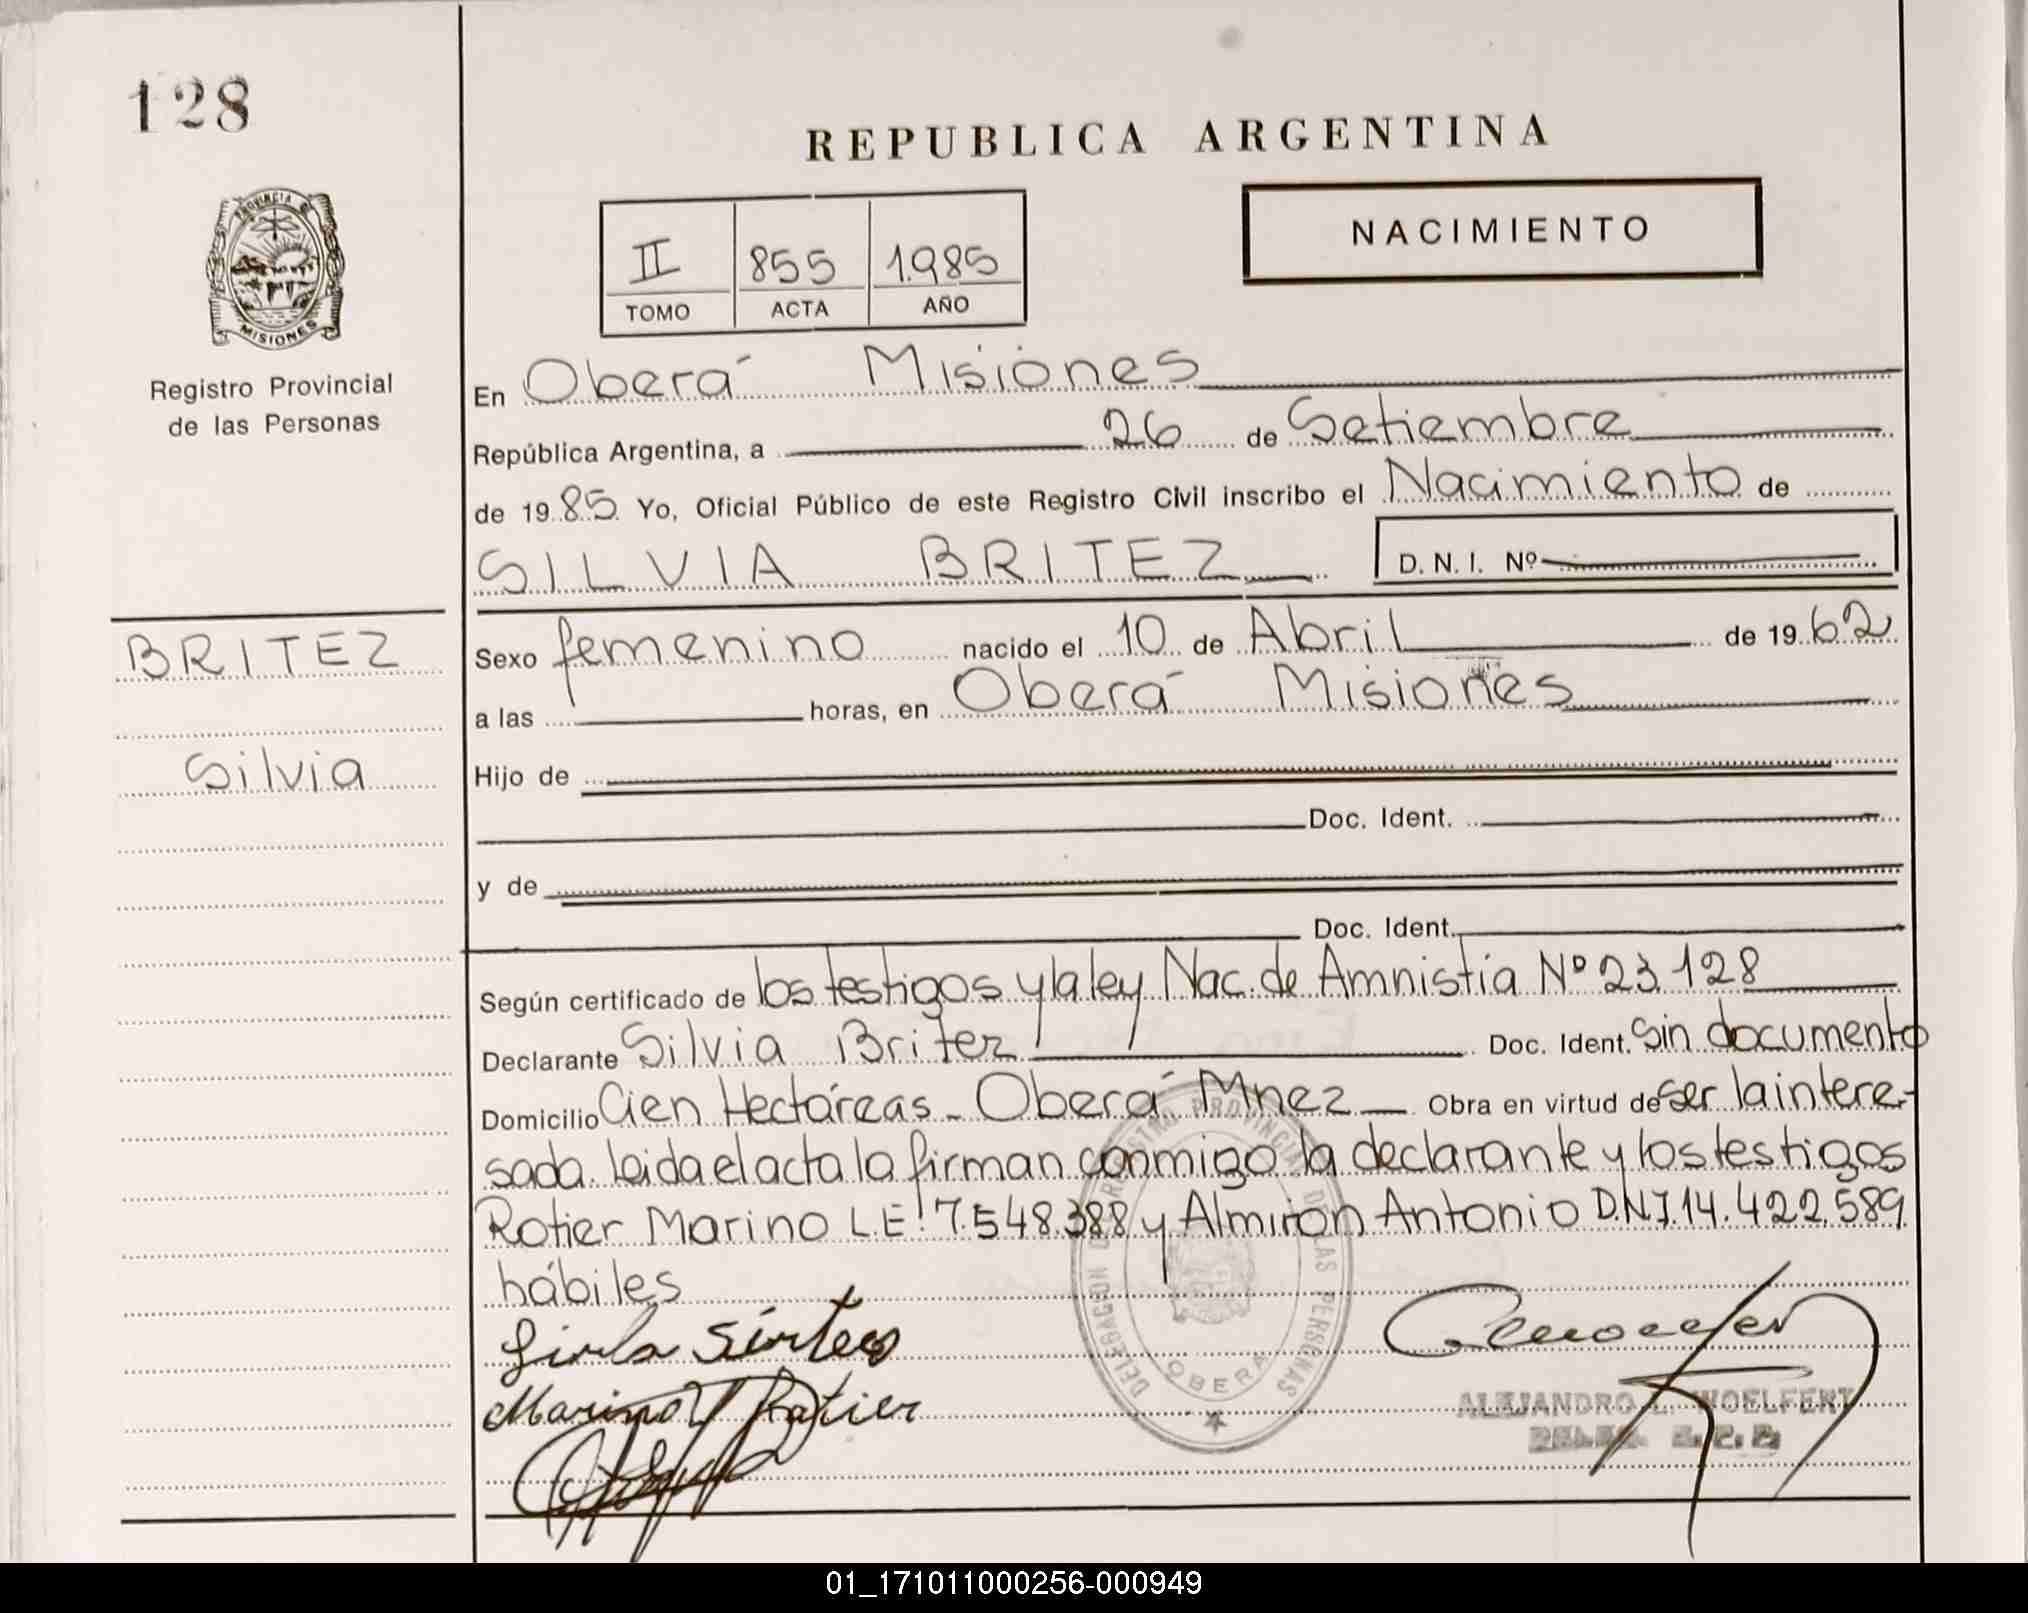 128
REPUBLICA ARGENTINA
NACIMIENTO
II 855 1.985
TOMO ACTA AÑO
PROVINCIA DE
MISIONES
Registro Provincial
de las Personas
BRITEZ
Silvia
En Oberá Misiones
República Argentina, a 26 de Setiembre
de 1985 Yo, Oficial Público de este Registro Civil inscribo el Nacimiento de
SILVIA BRITEZ D.N.I. Nº
Sexo femenino nacido el 10 de Abril de 1962
a las horas, en Oberá Misiones
Hijo de
Doc. Ident.
y de
Doc. Ident.
Según certificado de los testigos y la ley Nac. de Amnistía Nº 23.128
Declarante Silvia Britez Doc. Ident. Sin documento
Domicilio Cien Hectáreas - Oberá Mnez Obra en virtud de ser la intere-
sada. Leida el acta la firman conmigo la declarante y los testigos
Rotier Marino L.E! 7.548.388 y Almirón Antonio D.N.I. 14.422.589
hábiles
Marino Ratier
DELEGACION DEL REGISTRO PROVINCIAL DE LAS PERSONAS
OBERA
ALEJANDRO L. WOELFERT
01_171011000256-000949